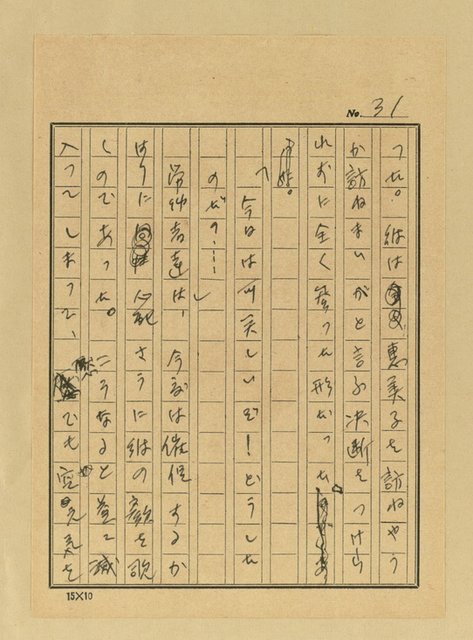 No. 31
った。彼は恵美子を訪ねやう
か訪ねまいかと言ふ決断をつけら
れずに全く参った形だった
「今日は可笑しいぞ!どうした
のだ?……」
労働者達は、今度は催促するか
はりに心配さうに彼の顔を覗
くのであった。こうなると益々滅
入ってしまって、でも空元気を
15×10